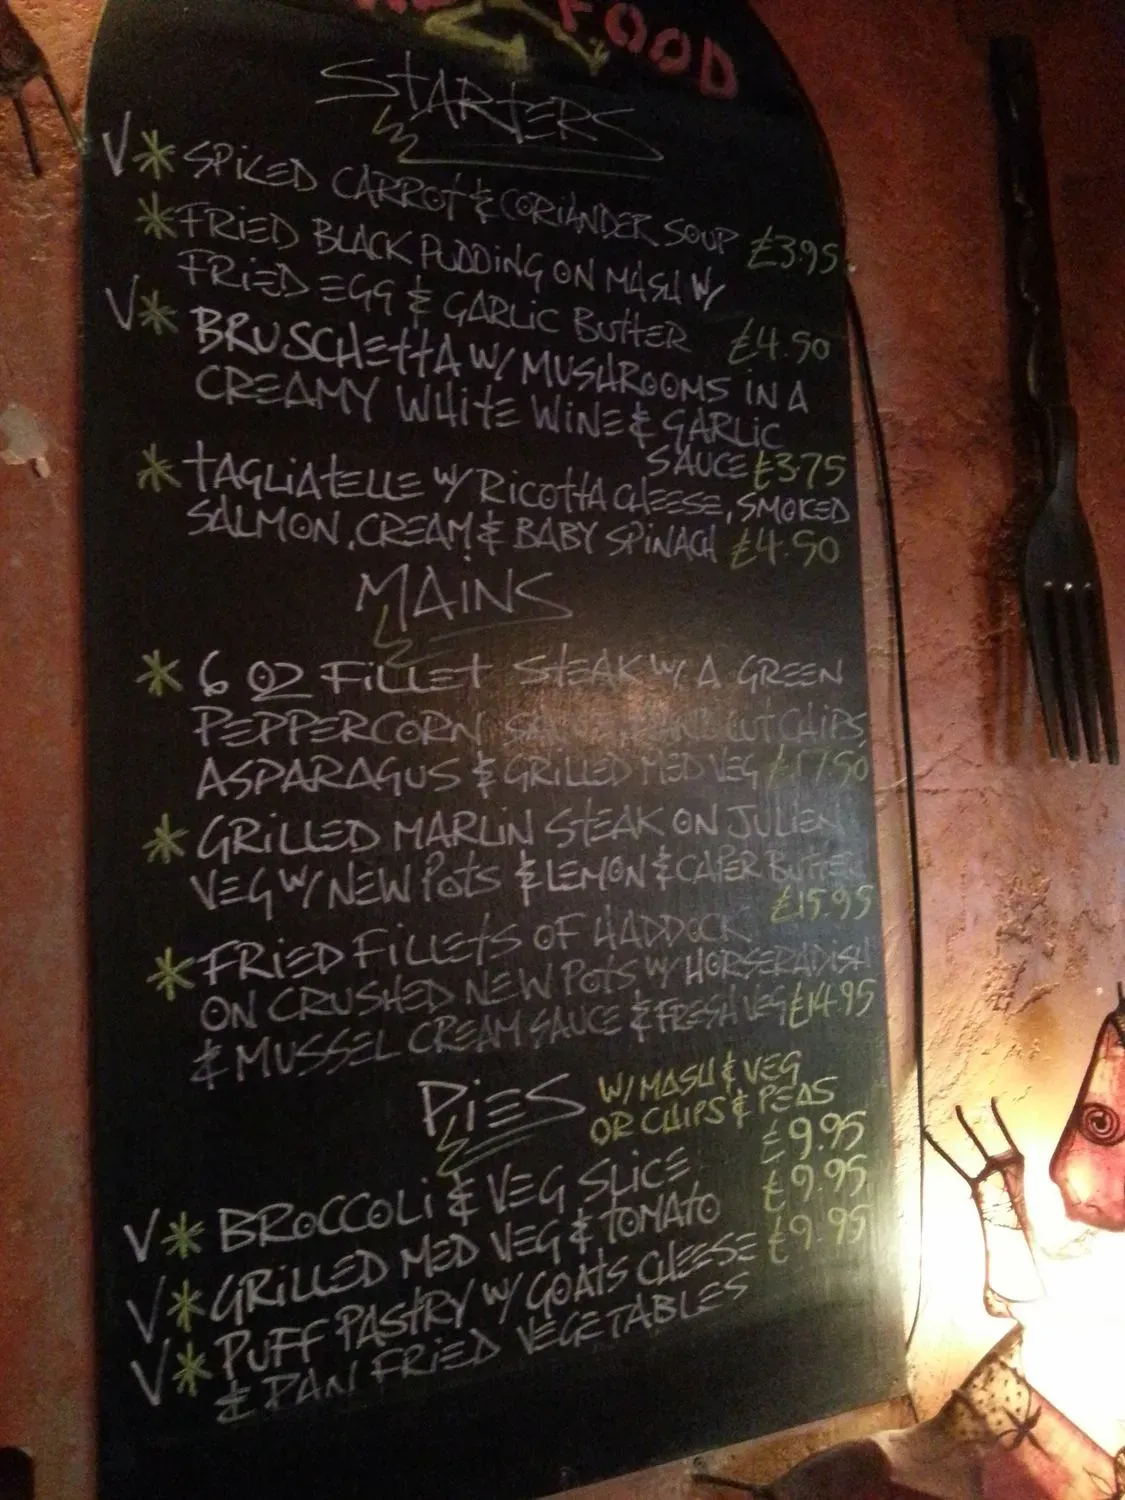 FOOD
STARTERS
V * SPIKED CARROT & CORIANDER SOUP £3.95
* FRIED BLACK PUDDING ON MASH W/
FRIED EGG & GARLIC BUTTER £4.50
V * BRUSCHETTA W/ MUSHROOMS IN A
CREAMY WHITE WINE & GARLIC
SAUCE £3.75
* TAGLIATELLE W/ RICOTTA CHEESE, SMOKED
SALMON, CREAM & BABY SPINACH £4.50
MAINS
* 6 OZ FILLET STEAK W/ A GREEN
PEPPERCORN SAUCE, HAND CUT CHIPS,
ASPARAGUS & GRILLED MED VEG £17.50
* GRILLED MARLIN STEAK ON JULIEN
VEG W/ NEW POTS & LEMON & CAPER BUTTER
£15.95
* FRIED FILLETS OF HADDOCK
ON CRUSHED NEW POTS W/ HORSERADISH
& MUSSEL CREAM SAUCE & FRESH VEG £14.95
PIES W/ MASH & VEG
OR CHIPS & PEAS
V * BROCCOLI & VEG SLICE £9.95
V * GRILLED MED VEG & TOMATO £9.95
V * PUFF PASTRY W/ GOATS CHEESE £9.95
& PAN FRIED VEGETABLES